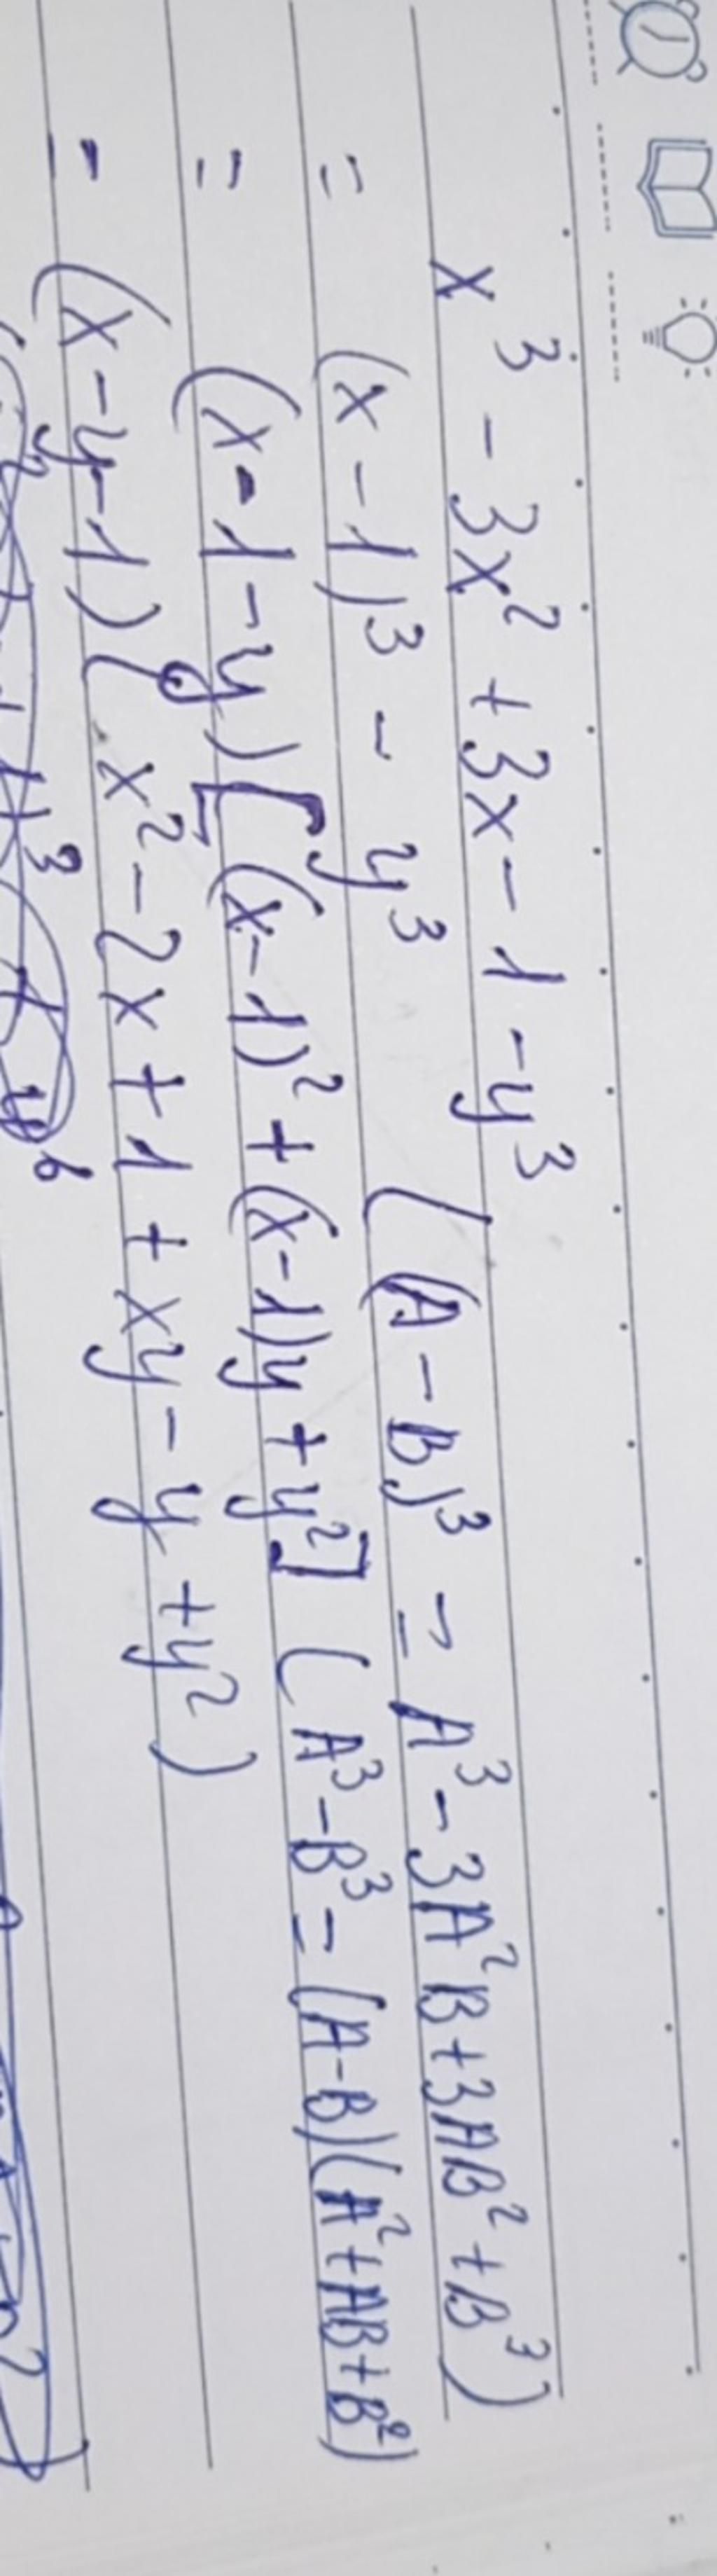 x³ - 3x² + 3x - 1 - y³
= (x - 1)³ - y³ ( (A - B)³ = A³ - 3A²B + 3AB² + B³)
= (x - 1 - y) [(x - 1)² + (x - 1)y + y²] (A³ - B³ = (A - B)(A² + AB + B²)
= (x - y - 1) (x² - 2x + 1 + xy - y + y²)